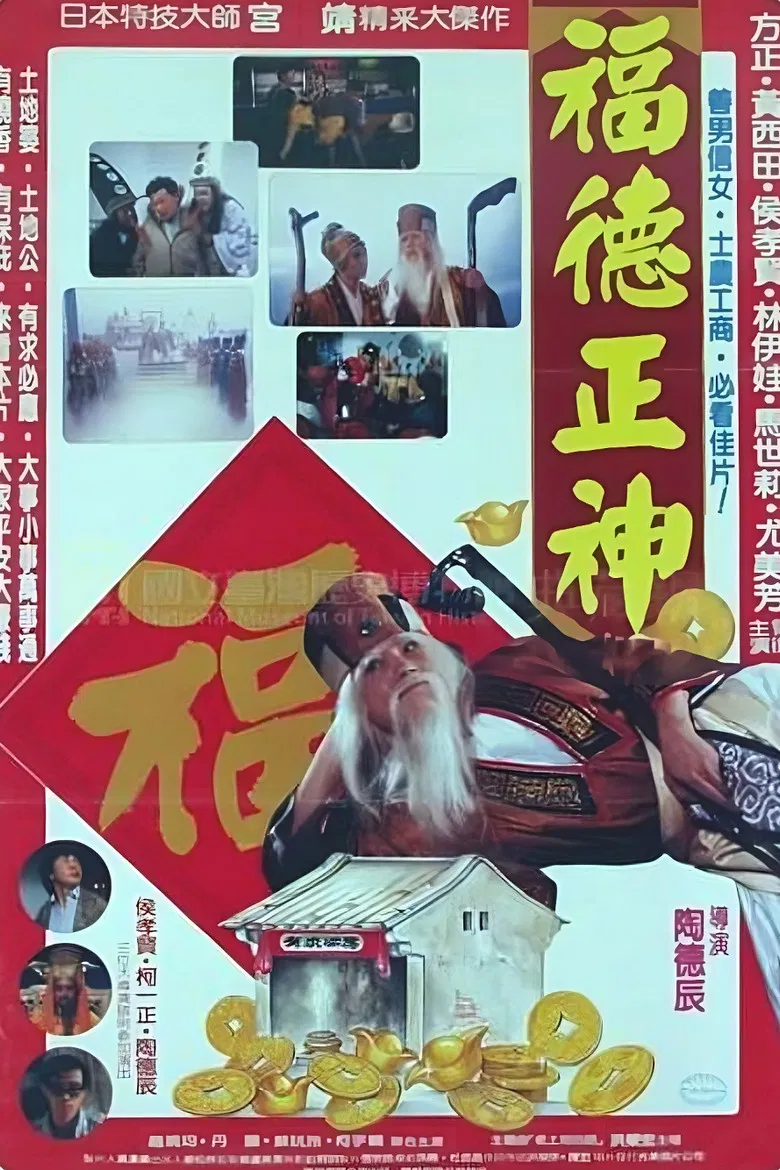 日本特技大師宮 靖精采大傑作
福德正神
善男信女・士農工商・必看佳片!
方正・黃西田・侯孝賢・林伊娃・馬世莉・尤美芳
主演
土地婆・土地公・有求必應・大事小事萬事通
有燒香・有保庇・來看本片・大家平安大賺錢
福
國立臺灣歷史博物館
National Museum of Taiwan History
侯孝賢・柯一正・陶德辰
導演
陶德辰